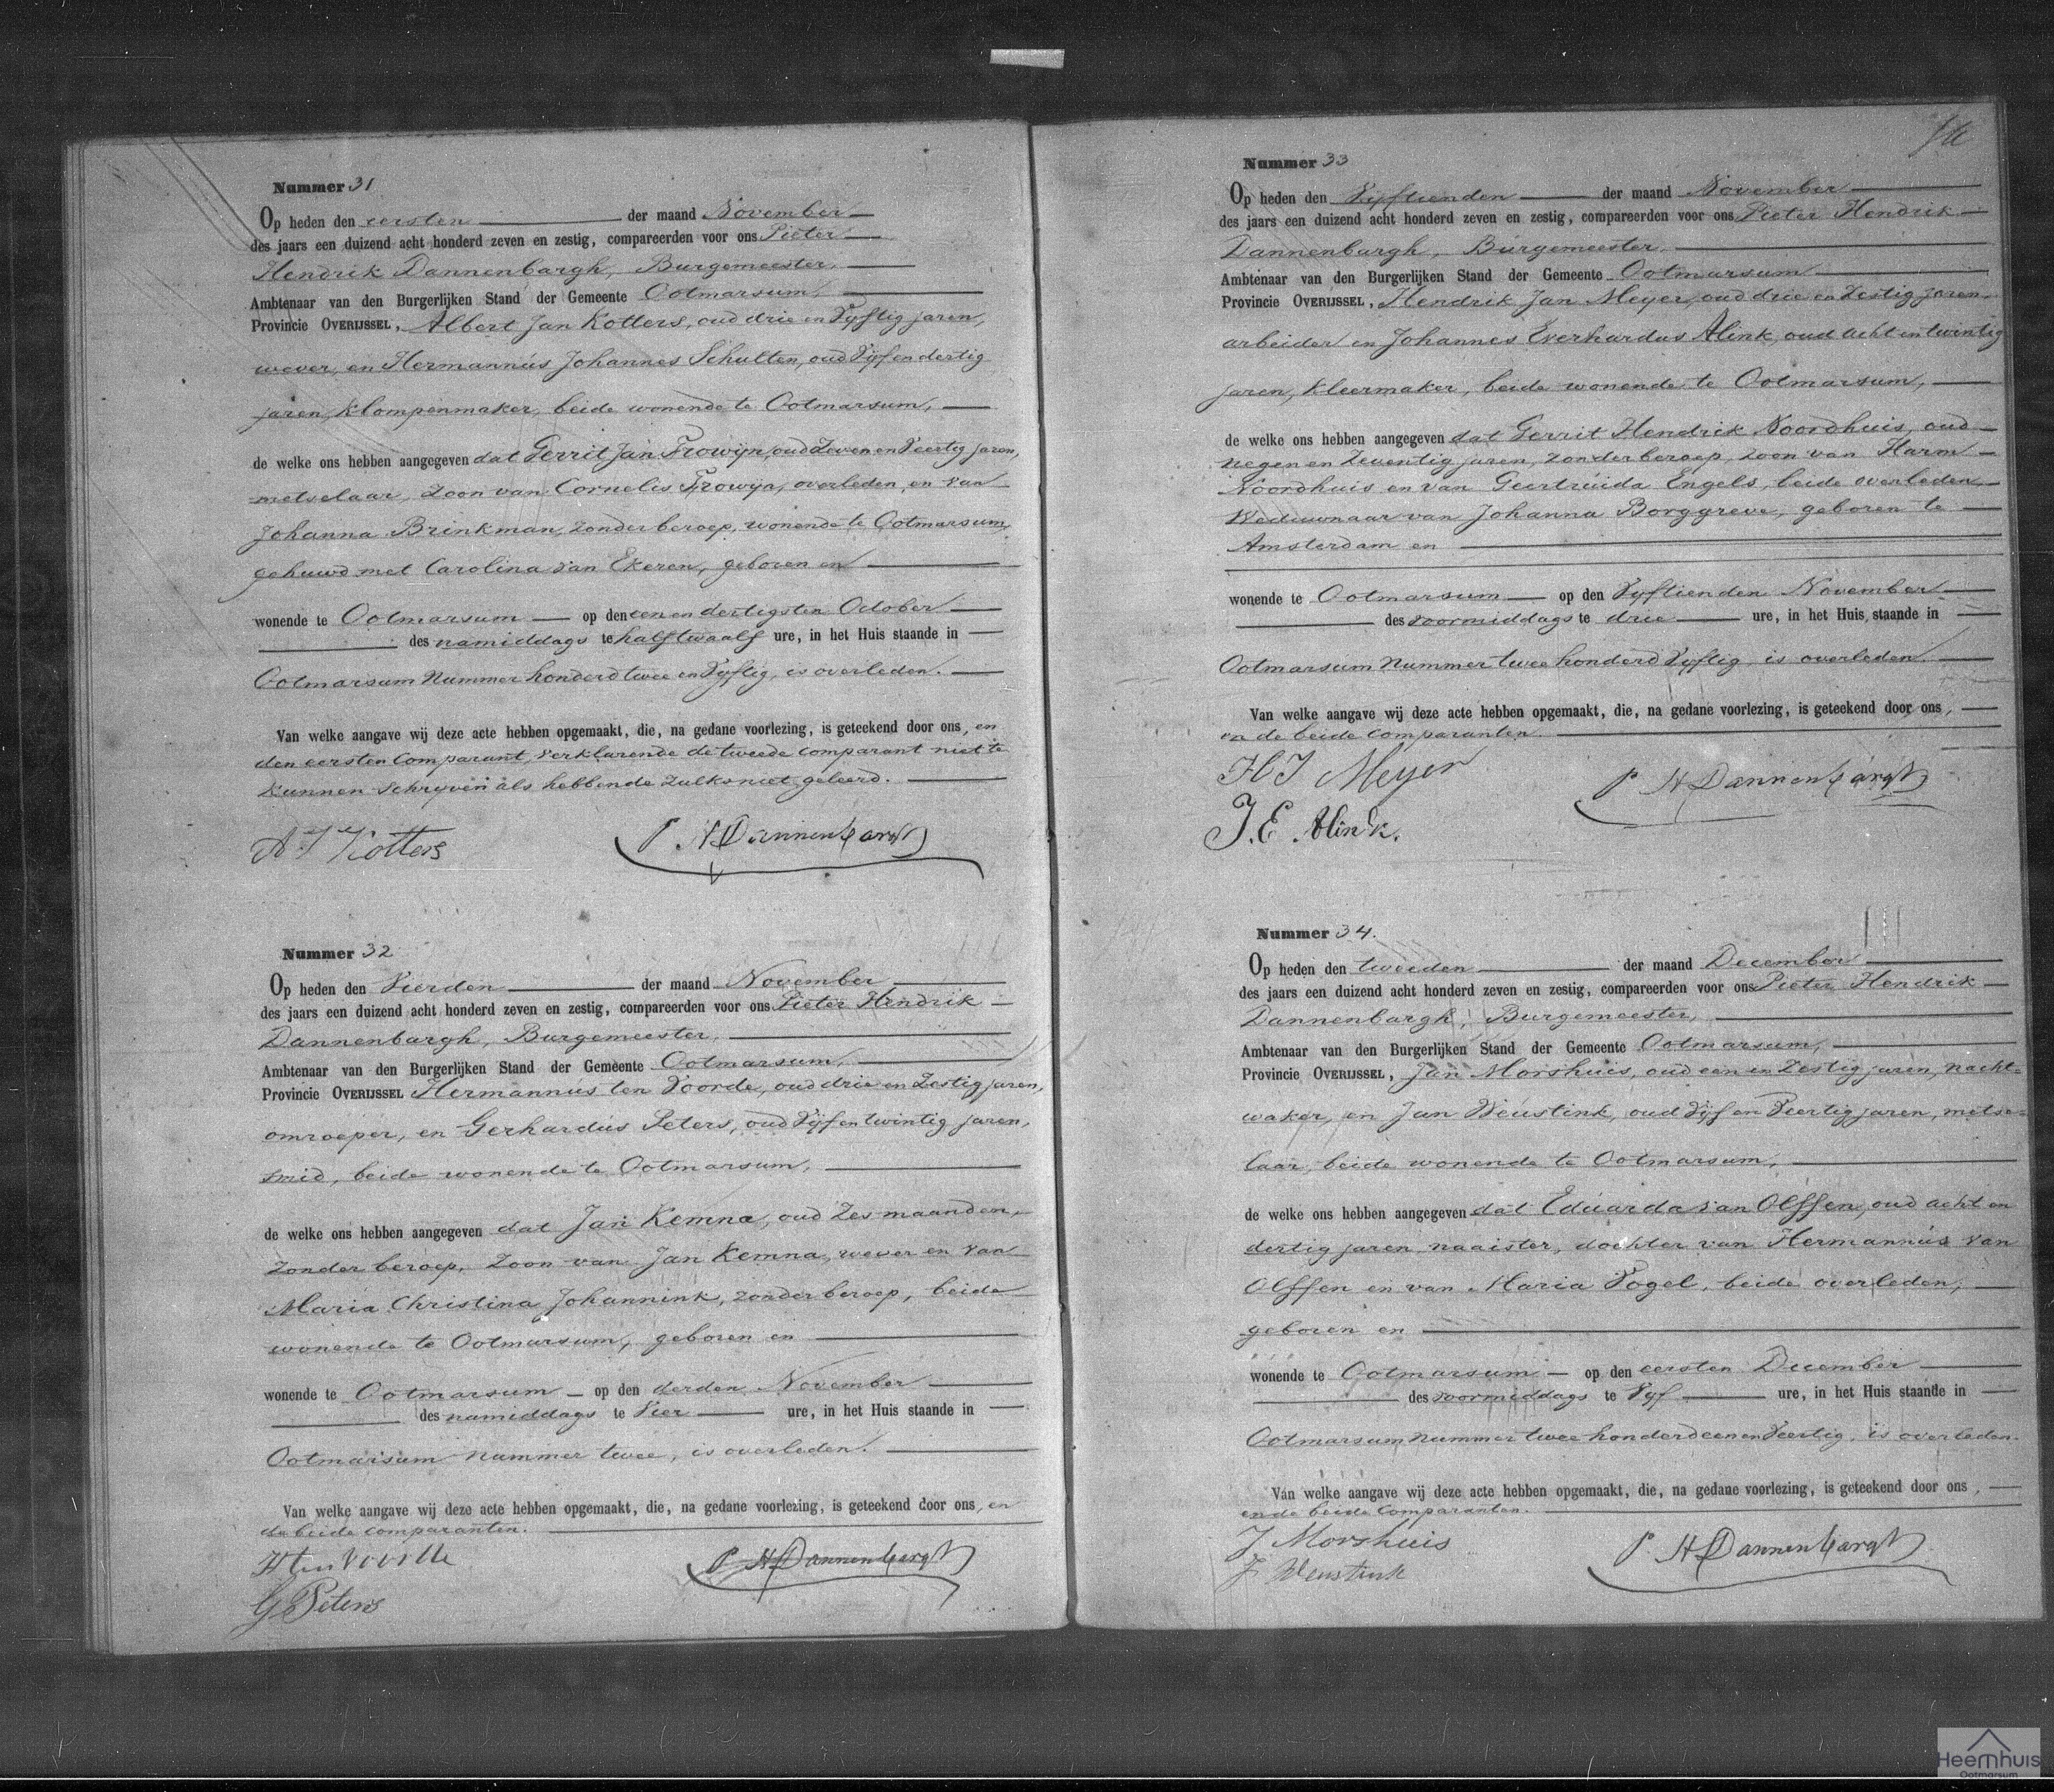 Nummer 31
Op heden den eersten der maand November
des jaars een duizend acht honderd zeven en zestig, compareerden voor ons Pieter
Hendrik Dannenbargh, Burgemeester,
Ambtenaar van den Burgerlijken Stand der Gemeente Ootmarsum,
Provincie OVERIJSSEL, Albert Jan Kotters, oud drie en Vyftig jaren,
wever, en Hermannus Johannes Schulten, oud Vyf en dertig
jaren, klompenmaker, beide wonende te Ootmarsum,
de welke ons hebben aangegeven dat Gerrit Jan Frowijn, oud Zeven en Veertig jaren,
metselaar, zoon van Cornelis Frowijn, overleden, en van
Johanna Brinkman, zonder beroep, wonende te Ootmarsum,
gehuwd met Carolina van Ekeren, geboren en
wonende te Ootmarsum op den een en dertigsten October
des namiddags te half twaalf ure, in het Huis staande in
Ootmarsum Nummer honderd twee en Vyftig, is overleden.
Van welke aangave wij deze acte hebben opgemaakt, die, na gedane voorlezing, is geteekend door ons, en
den eersten Comparant, Verklarende de tweede comparant niet te
kunnen schryven als hebbende zulks niet geleerd.
A J Kotters
P. H Dannenbargh
Nummer 32
Op heden den Vierden der maand November
des jaars een duizend acht honderd zeven en zestig, compareerden voor ons Pieter Hendrik
Dannenbargh, Burgemeester,
Ambtenaar van den Burgerlijken Stand der Gemeente Ootmarsum,
Provincie OVERIJSSEL Hermannus ten Voorde, oud drie en Zestig jaren,
omroeper, en Gerhardus Peters, oud Vijf en twintig jaren,
smid, beide wonende te Ootmarsum,
de welke ons hebben aangegeven dat Jan Kemna, oud Zes maanden,
zonder beroep, zoon van Jan Kemna, wever en van
Maria Christina Johannink, zonder beroep, beide
wonende te Ootmarsum, geboren en
wonende te Ootmarsum op den derden November
des namiddags te Vier ure, in het Huis staande in
Ootmarsum nummer twee, is overleden.
Van welke aangave wij deze acte hebben opgemaakt, die, na gedane voorlezing, is geteekend door ons, en
de beide comparanten.
H ten Voorde
G Peters
P H Dannenbargh
Nummer 33
Op heden den Vyftienden der maand November
des jaars een duizend acht honderd zeven en zestig, compareerden voor ons Pieter Hendrik
Dannenbargh, Burgemeester,
Ambtenaar van den Burgerlijken Stand der Gemeente Ootmarsum
Provincie OVERIJSSEL, Hendrik Jan Meyer, oud drie en Zestig jaren,
arbeider en Johannes Everhardus Alink, oud acht en twintig
jaren, kleermaker, beide wonende te Ootmarsum,
de welke ons hebben aangegeven dat Gerrit Hendrik Noordhuis, oud
negen en Zeventig jaren, zonder beroep, zoon van Harm
Noordhuis en van Geertruida Engels, beide overleden,
Weduwnaar van Johanna Borggreve, geboren te
Amsterdam en
wonende te Ootmarsum op den Vyftienden November
des voormiddags te drie ure, in het Huis staande in
Ootmarsum Nummer twee honderd Vyftig, is overleden.
Van welke aangave wij deze acte hebben opgemaakt, die, na gedane voorlezing, is geteekend door ons,
en de beide comparanten.
H J Meyer
P H Dannenbargh
J. E. Alink.
Nummer 34.
Op heden den tweeden der maand December
des jaars een duizend acht honderd zeven en zestig, compareerden voor ons Pieter Hendrik
Dannenbargh, Burgemeester,
Ambtenaar van den Burgerlijken Stand der Gemeente Ootmarsum,
Provincie OVERIJSSEL, Jan Morshuis, oud een en Zestig jaren, nacht=
waker, en Jan Weustink, oud Vyf en Veertig jaren, metse=
laar, beide wonende te Ootmarsum,
de welke ons hebben aangegeven dat Eduarda van Olffen, oud acht en
dertig jaren, naaister, dochter van Hermannus van
Olffen en van Maria Vogel, beide overleden,
geboren en
wonende te Ootmarsum op den eersten December
des voormiddags te Vyf ure, in het Huis staande in
Ootmarsum nummer twee honderd een en Veertig, is overleden.
Van welke aangave wij deze acte hebben opgemaakt, die, na gedane voorlezing, is geteekend door ons,
en de beide Comparanten.
J Morshuis
P. H Dannenbargh
J Weustink
Heemhuis
Ootmarsum